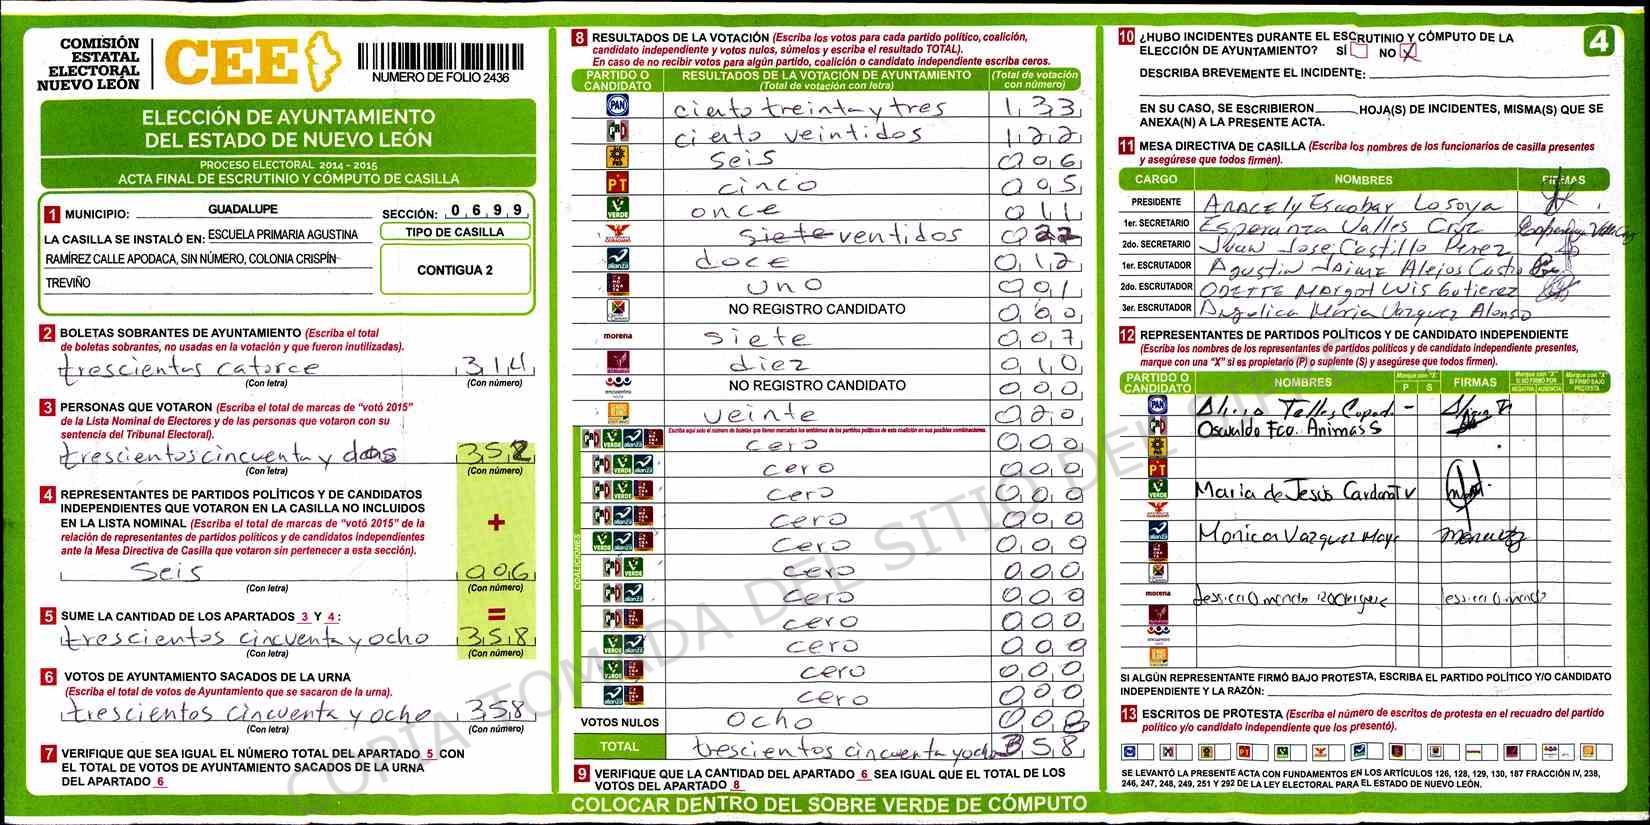 COMISIÓN
ESTATAL
ELECTORAL
NUEVO LEÓN
CEE
NUMERO DE FOLIO 2436
ELECCIÓN DE AYUNTAMIENTO
DEL ESTADO DE NUEVO LEÓN
PROCESO ELECTORAL 2014 - 2015
ACTA FINAL DE ESCRUTINIO Y CÓMPUTO DE CASILLA
1 MUNICIPIO: GUADALUPE SECCIÓN: 0 6 9 9
LA CASILLA SE INSTALÓ EN: ESCUELA PRIMARIA AGUSTINA
RAMÍREZ CALLE APODACA, SIN NÚMERO, COLONIA CRISPÍN
TREVIÑO
TIPO DE CASILLA
CONTIGUA 2
2 BOLETAS SOBRANTES DE AYUNTAMIENTO (Escriba el total
de boletas sobrantes, no usadas en la votación y que fueron inutilizadas).
trescientas catorce 314
(Con letra) (Con número)
3 PERSONAS QUE VOTARON (Escriba el total de marcas de “votó 2015”
de la Lista Nominal de Electores y de las personas que votaron con su
sentencia del Tribunal Electoral).
trescientos cincuenta y dos 352
(Con letra) (Con número)
4 REPRESENTANTES DE PARTIDOS POLÍTICOS Y DE CANDIDATOS
INDEPENDIENTES QUE VOTARON EN LA CASILLA NO INCLUIDOS
EN LA LISTA NOMINAL (Escriba el total de marcas de “votó 2015” de la
relación de representantes de partidos políticos y de candidatos independientes
ante la Mesa Directiva de Casilla que votaron sin pertenecer a esta sección).
+
Seis 006
(Con letra) (Con número)
=
5 SUME LA CANTIDAD DE LOS APARTADOS 3 Y 4:
trescientos cincuenta y ocho 358
(Con letra) (Con número)
6 VOTOS DE AYUNTAMIENTO SACADOS DE LA URNA
(Escriba el total de votos de Ayuntamiento que se sacaron de la urna).
trescientos cincuenta y ocho 358
(Con letra) (Con número)
7 VERIFIQUE QUE SEA IGUAL EL NÚMERO TOTAL DEL APARTADO 5 CON
EL TOTAL DE VOTOS DE AYUNTAMIENTO SACADOS DE LA URNA
DEL APARTADO 6
8 RESULTADOS DE LA VOTACIÓN (Escriba los votos para cada partido político, coalición,
candidato independiente y votos nulos, súmelos y escriba el resultado TOTAL).
En caso de no recibir votos para algún partido, coalición o candidato independiente escriba ceros.
PARTIDO O CANDIDATO RESULTADOS DE LA VOTACIÓN DE AYUNTAMIENTO (Total de votación con letra) (Total de votación con número)
PAN ciento treinta y tres 133
PRI ciento veintidos 122
PRD seis 006
PT cinco 005
VERDE once 011
siete ventidos 022
alianza doce 012
uno 001
NO REGISTRO CANDIDATO 000
morena siete 007
diez 010
NO REGISTRO CANDIDATO 000
veinte 020
Escriba aquí solo el número de boletas que tienen marcados los emblemas de los partidos políticos de esta coalición en sus posibles combinaciones.
COALICIONES
cero 000
cero 000
cero 000
cero 000
cero 000
cero 000
cero 000
cero 000
cero 000
cero 000
cero 000
VOTOS NULOS ocho 008
TOTAL trescientos cincuenta y ocho 358
9 VERIFIQUE QUE LA CANTIDAD DEL APARTADO 6 SEA IGUAL QUE EL TOTAL DE LOS
VOTOS DEL APARTADO 8
COLOCAR DENTRO DEL SOBRE VERDE DE CÓMPUTO
4
10 ¿HUBO INCIDENTES DURANTE EL ESCRUTINIO Y CÓMPUTO DE LA
ELECCIÓN DE AYUNTAMIENTO? SÍ NO X
DESCRIBA BREVEMENTE EL INCIDENTE:
EN SU CASO, SE ESCRIBIERON HOJA(S) DE INCIDENTES, MISMA(S) QUE SE
ANEXA(N) A LA PRESENTE ACTA.
11 MESA DIRECTIVA DE CASILLA (Escriba los nombres de los funcionarios de casilla presentes
y asegúrese que todos firmen).
CARGO NOMBRES FIRMAS
PRESIDENTE Aracely Escobar Losoya
1er. SECRETARIO Esperanza Valles Cruz
2do. SECRETARIO Juan Jose Castillo Perez
1er. ESCRUTADOR Agustin Jaime Alejos Castro
2do. ESCRUTADOR Odette Margot Luis Gutierez
3er. ESCRUTADOR Angelica Maria Vazquez Alonso
12 REPRESENTANTES DE PARTIDOS POLÍTICOS Y DE CANDIDATO INDEPENDIENTE
(Escriba los nombres de los representantes de partidos políticos y de candidato independiente presentes,
marque con una “X” si es propietario (P) o suplente (S) y asegúrese que todos firmen).
PARTIDO O CANDIDATO NOMBRES P S FIRMAS
PAN Telles
Oswaldo Fco. Animas S
PT
VERDE Maria de Jesús
Monica Vazquez
morena
SI ALGÚN REPRESENTANTE FIRMÓ BAJO PROTESTA, ESCRIBA EL PARTIDO POLÍTICO Y/O CANDIDATO
INDEPENDIENTE Y LA RAZÓN:
13 ESCRITOS DE PROTESTA (Escriba el número de escritos de protesta en el recuadro del partido
político y/o candidato independiente que los presentó).
SE LEVANTÓ LA PRESENTE ACTA CON FUNDAMENTOS EN LOS ARTÍCULOS 126, 128, 129, 130, 187 FRACCIÓN IV, 238,
246, 247, 248, 249, 251 Y 292 DE LA LEY ELECTORAL PARA EL ESTADO DE NUEVO LEÓN.
COPIA TOMADA DEL SITIO DEL SIPRE